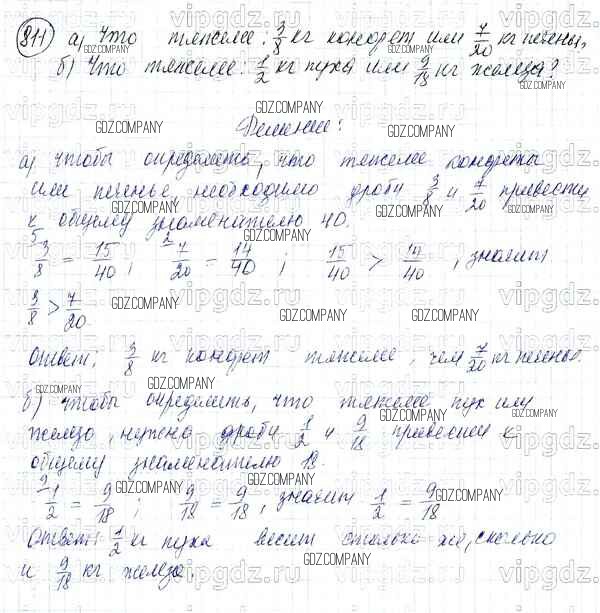 811 а) Что тяжелее: 3/8 кг конфет или 7/20 кг печенья,
б) Что тяжелее: 1/2 кг пуха или 9/18 кг железа?
Решение:
а) Чтобы определить, что тяжелее конфеты
или печенье, необходимо дроби 3/8 и 7/20 привести
к общему знаменателю 40.
5 3/8 = 15/40 ; 2 7/20 = 14/40 ; 15/40 > 14/40 , значит
3/8 > 7/20.
Ответ: 3/8 кг конфет тяжелее, чем 7/20 кг печенья.
б) Чтобы определить, что тяжелее пух или
железо, нужно дроби 1/2 и 9/18 привести к
общему знаменателю 18.
9 1/2 = 9/18 ; 9/18 = 9/18 , значит 1/2 = 9/18
Ответ: 1/2 кг пуха весит столько же, сколько
и 9/18 кг железа.
vipgdz.ru
GDZ.COMPANY